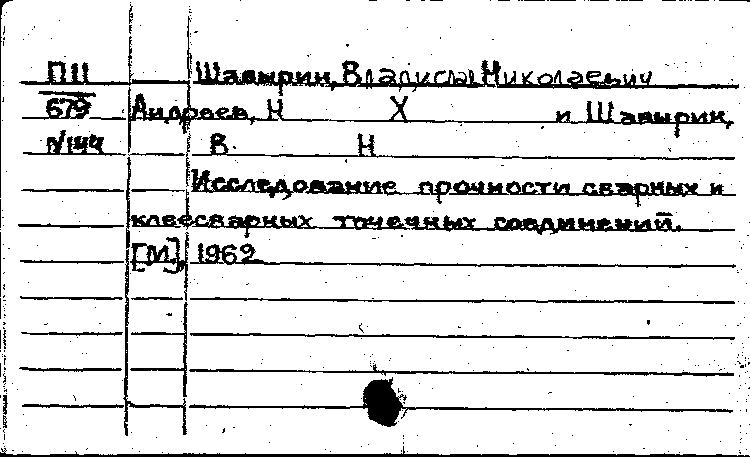 П11 Шавырин, Владислав Николаевич
679 Андреев, Н Х и Шавырин,
N144 В. Н
Исследование прочности сварных и
клеесварных точечных соединений.
[М], 1962